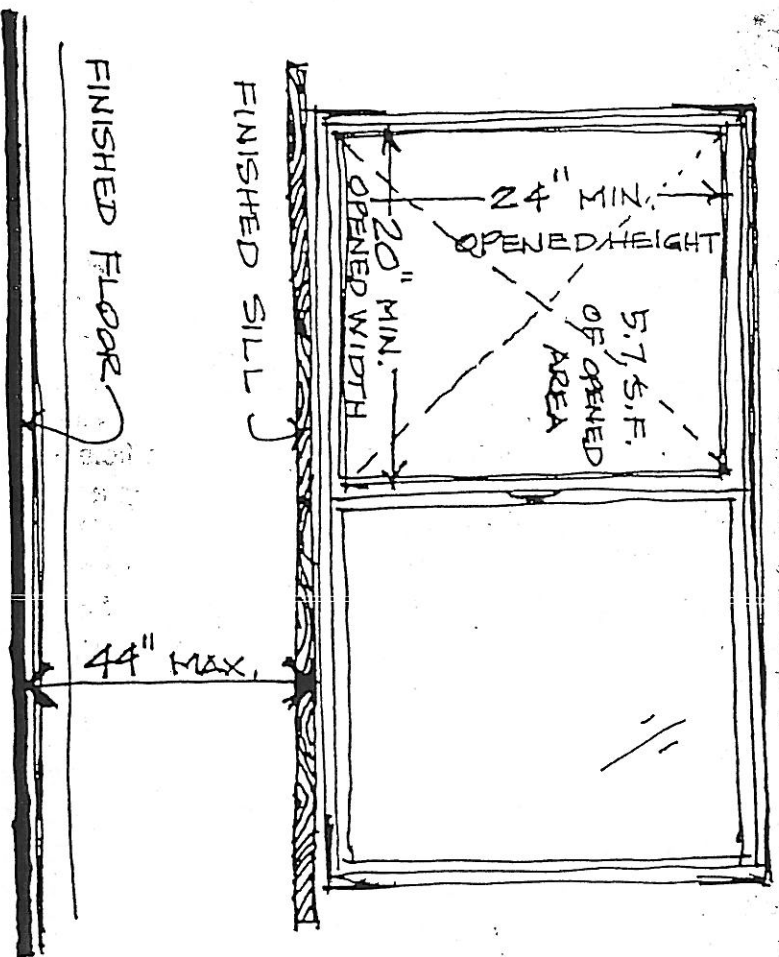 24" MIN.
OPENED HEIGHT
20" MIN.
OPENED WIDTH
5.7 S.F.
OF OPENED
AREA
FINISHED SILL
44" MAX.
FINISHED FLOOR